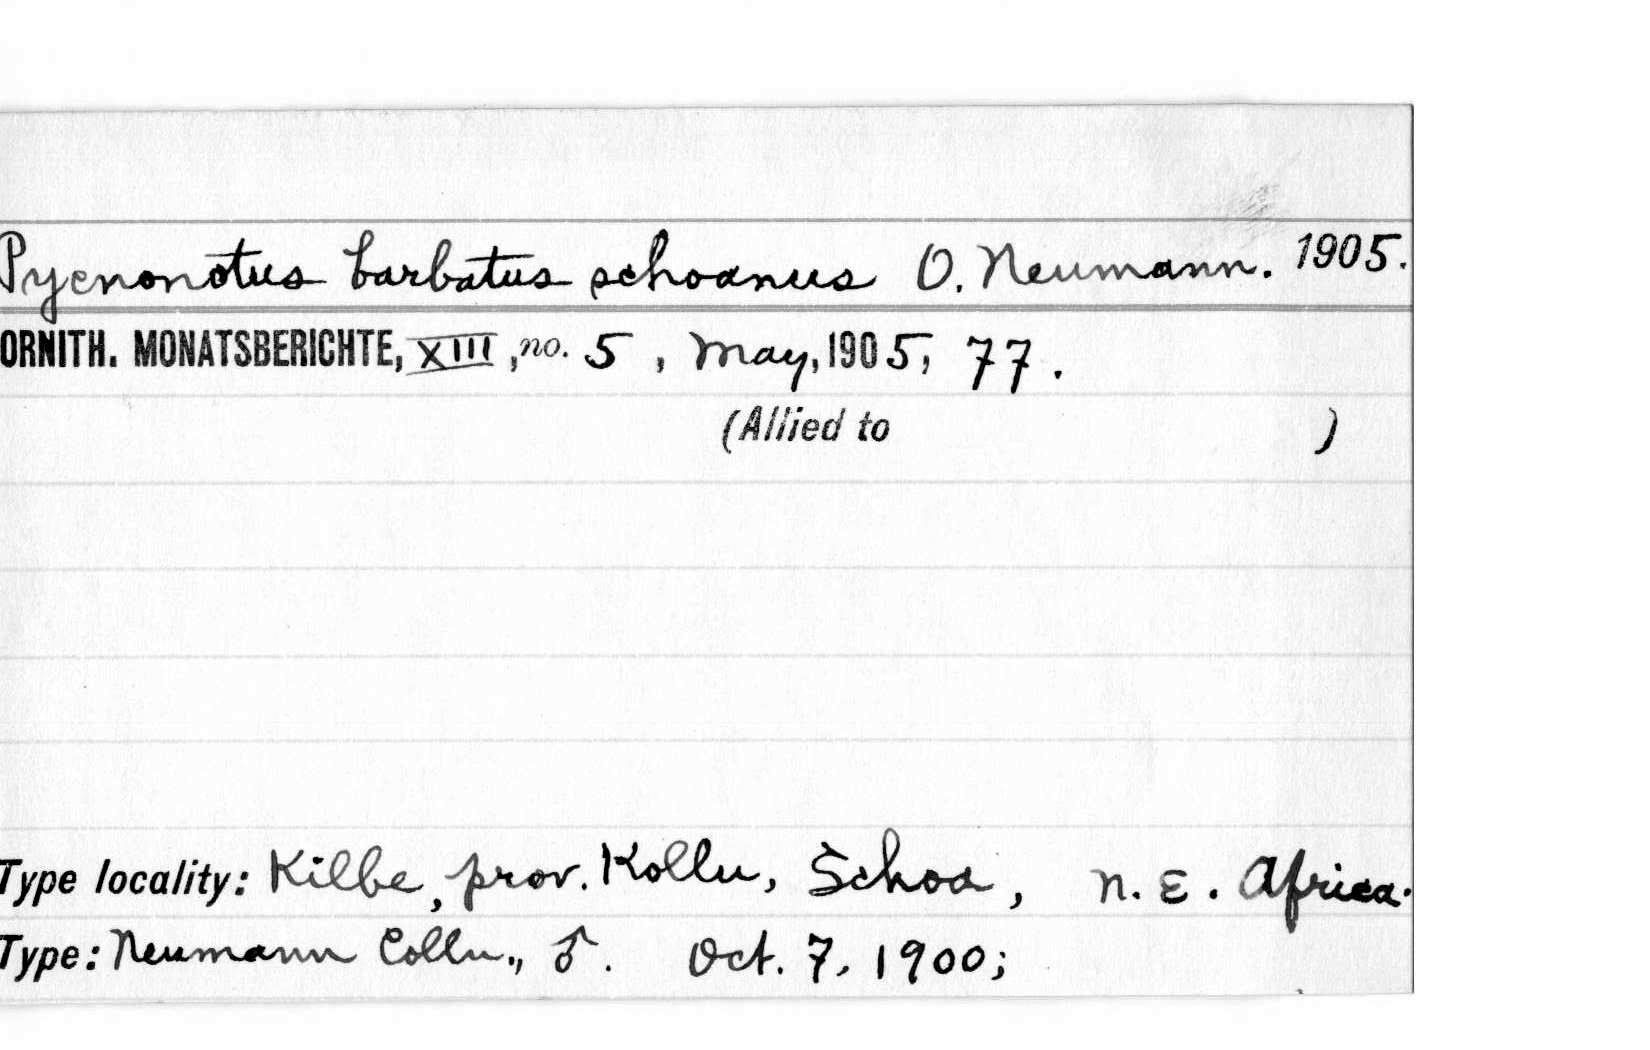 Pycnonotus barbatus schoanus O. Neumann. 1905.
ORNITH. MONATSBERICHTE, XIII, no. 5, May, 1905, 77.
(Allied to )
Type locality: Kilbe, prov. Kollu, Schoa, N. E. Africa.
Type: Neumann Colln., ♂. Oct. 7, 1900;